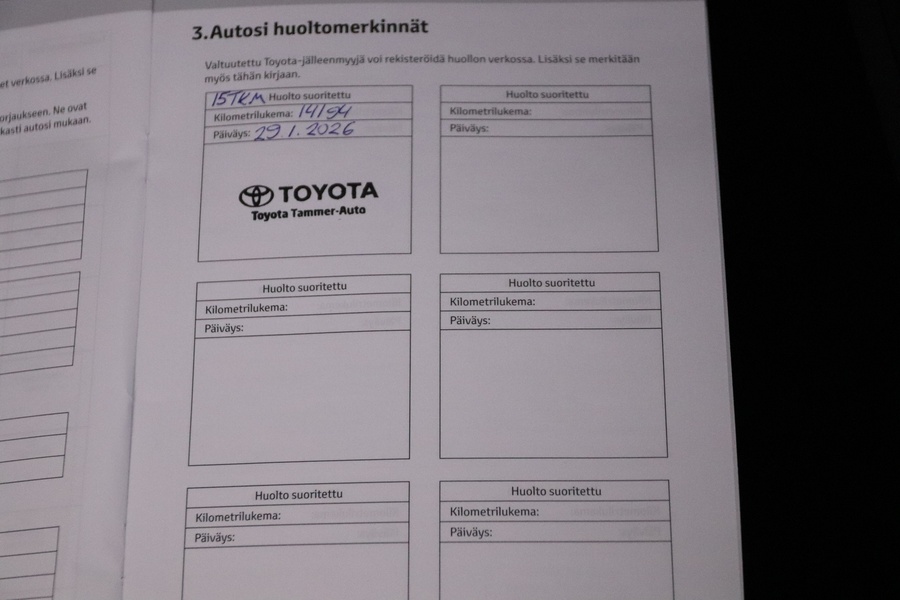 et verkossa. Lisäksi se
orjaukseen. Ne ovat
kasti autosi mukaan.
3. Autosi huoltomerkinnät
Valtuutettu Toyota-jälleenmyyjä voi rekisteröidä huollon verkossa. Lisäksi se merkitään
myös tähän kirjaan.
15TKM Huolto suoritettu
Kilometrilukema: 14194
Päiväys: 29.1.2026
TOYOTA
Toyota Tammer-Auto
Huolto suoritettu
Kilometrilukema:
Päiväys:
Huolto suoritettu
Kilometrilukema:
Päiväys:
Huolto suoritettu
Kilometrilukema:
Päiväys:
Huolto suoritettu
Kilometrilukema:
Päiväys:
Huolto suoritettu
Kilometrilukema:
Päiväys: